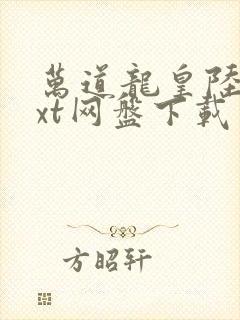 萬道龍皇陸
xt网盤下載
方昭轩